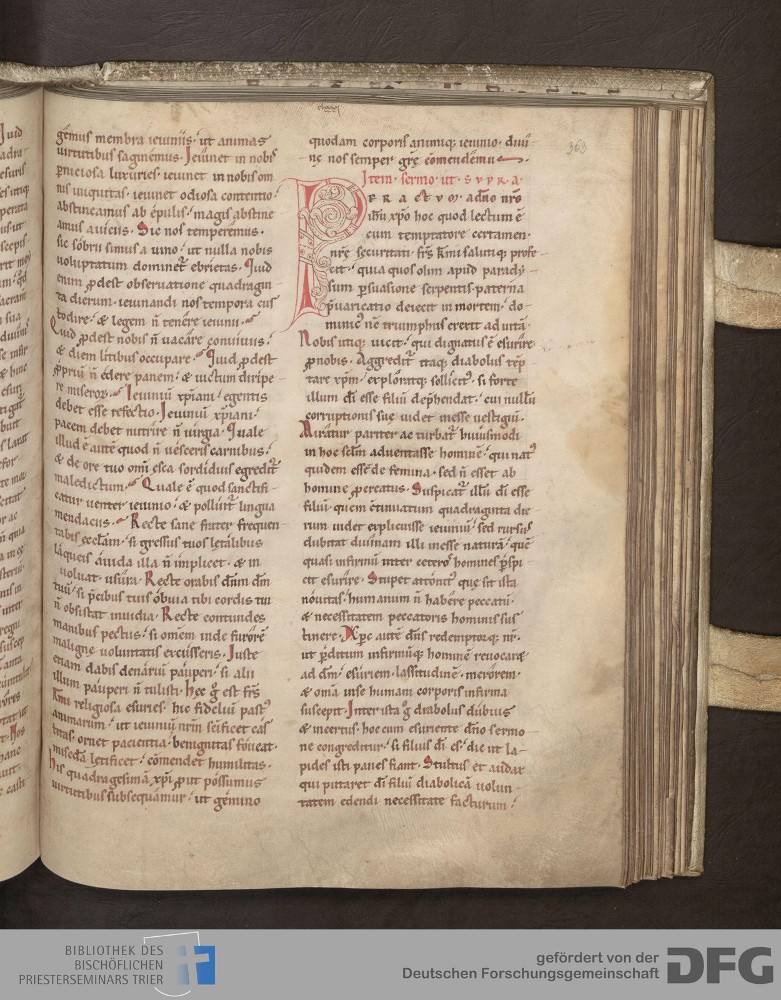 gemus membra ieiuniis· ut animas
uirtutibus saginemus. Ieiunet in nobis
ꝑniciosa luxuries· ieiunet in nobis om
nis iniquitas· ieiunet odiosa contentio·
abstineamus ab epulis· magis abstine
amus a uiciis. Sic nos temperemus·
sic sobrii simus a uino· ut nulla nobis
uoluptatum dominet᷑ ebrietas. Quid
enim ꝓdest obseruatione quadragin
ta dierum· ieiunandi nos tempora cus
todire· & legem n̄ tenere ieiunii·
Quid ꝓdest nobis n̄ uacare conuiuiis·
& diem litibus occupare· Quid ꝓdest
ꝓpriū n̄ edere panem· & uictum diripe
re miseroꝝ· Ieiuniū xp̄iani· egentis
debet esse refectio. Ieiuniū xp̄iani·
pacem debet nutrire n̄ iurgia. Quale
illud ē autē quod n̄ uesceris carnibus·
& de ore tuo omī esca sordidius egredit᷑
maledictum· Quale ē quod sanctifi
catur uenter ieiunio· & polluit᷑ lingua
mendaciis· Recte sane frater frequen
tabis ecclam̄· si gressus tuos letalibus
laqueis auida illa n̄ implicet· & in
uoluat· usura. Recte orabis dn̄m dm̄
tuū· si p̄cibus tuis obuia tibi cordis tui
n̄ obsistat inuidia. Recte contundes
manibus pectus· si omem inde furorē
maligne uoluntatis excusseris. Iuste
etiam dabis denariū pauperi· si alii
illum pauperi n̄ tulisti. Hec ḡ est frs̄
km̄i religiosa esuries· hic fideliū past᷒
animarum· ut ieiuniū nr̄m sc̄ificet cas
titas· ornet pacientia· benignitas foueat·
misc̄dia letificet· comendet humilitas·
his quadragesimā xp̄i ꝓut possumus
uirtutibus subsequamur· ut gemino
quodam corporis animiq; ieiunio· diui
nę nos semper grę comendemus
363
Item· sermo· ut· SVPRA·
PERACTVM· a dn̄o nr̄o
ih̄u xp̄o hoc quod lectum ē
cum temptatore certamen·
nrę̄ securitati· frs̄ km̄i salutiq; profe
cit· quia quos olim apud parady
sum ꝑsuasione serpentis paterna
p̄uaricatio deiecit in mortem· do
minic᷒ nē triumphus erexit ad uitā·
Nobis itiq; uicit· qui dignatus ē esurire
ꝓ nobis. Aggredit᷑ itaq; diabolus tēp
tare xpm̄· exploratq; sollicit᷒· si forte
illum dī esse filiū dep̄hendat· cui nullū
corruptionis suę uidet inesse uestigiū·
Miratur pariter ac turbat᷑ huiusmodi
in hoc sclm̄ aduentasse hominē· qui nat᷒
quidem esset de femina· sed n̄ esset ab
homine ꝓcreatus. Suspicat᷑ illū dī esse
filiū· quem c̄tinuatum quadraginta die
rum uidet explicuisse ieiuniū· sed rursū
dubitat diuinam illi inesse naturā· quē
quasi infirmū inter ceteros homines p̄spi
cit esurire. Stupet attonit᷒ quę sit ista
nouitas· humanum n̄ habere peccatū·
& necessitatem peccatoris hominis sus
tinere. Xp̄c autē dn̄s redemptorq; nr̄·
ut ꝑditum infirmūq; hominē reuocaret
ad dm̄· esuriem· lassitudinē· merorem·
& omīa in se humani corporis infirma
suscepit. Inter ista ḡ diabolus dubius
& incertus· hoc cum esuriente dn̄o sermo
ne congreditur· si filius dī es· dic ut la
pides isti panes fiant. Stultus et audax
qui putaret dī filiū diabolica uolun
tatem edendi necessitate facturum·
BIBLIOTHEK DES
BISCHÖFLICHEN
PRIESTERSEMINARS TRIER
gefördert von der
Deutschen Forschungsgemeinschaft
DFG